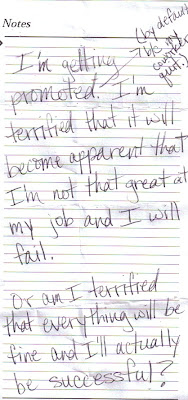 Notes
(by default
bc my
supervisor
quit.)
I'm getting
promoted. I'm
terrified that it will
become apparent that
I'm not that great at
my job and I will
fail.
Or am I terrified
that everything will be
fine and I'll actually
be successful?